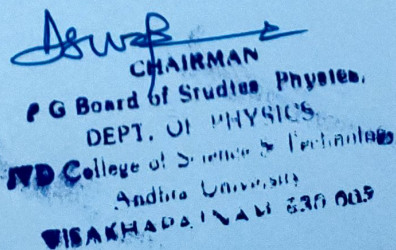 CHAIRMAN
P G Board of Studies Physics.
DEPT. OF PHYSICS
College of Science & Technology
Andhra University
VISAKHAPATNAM 530 003